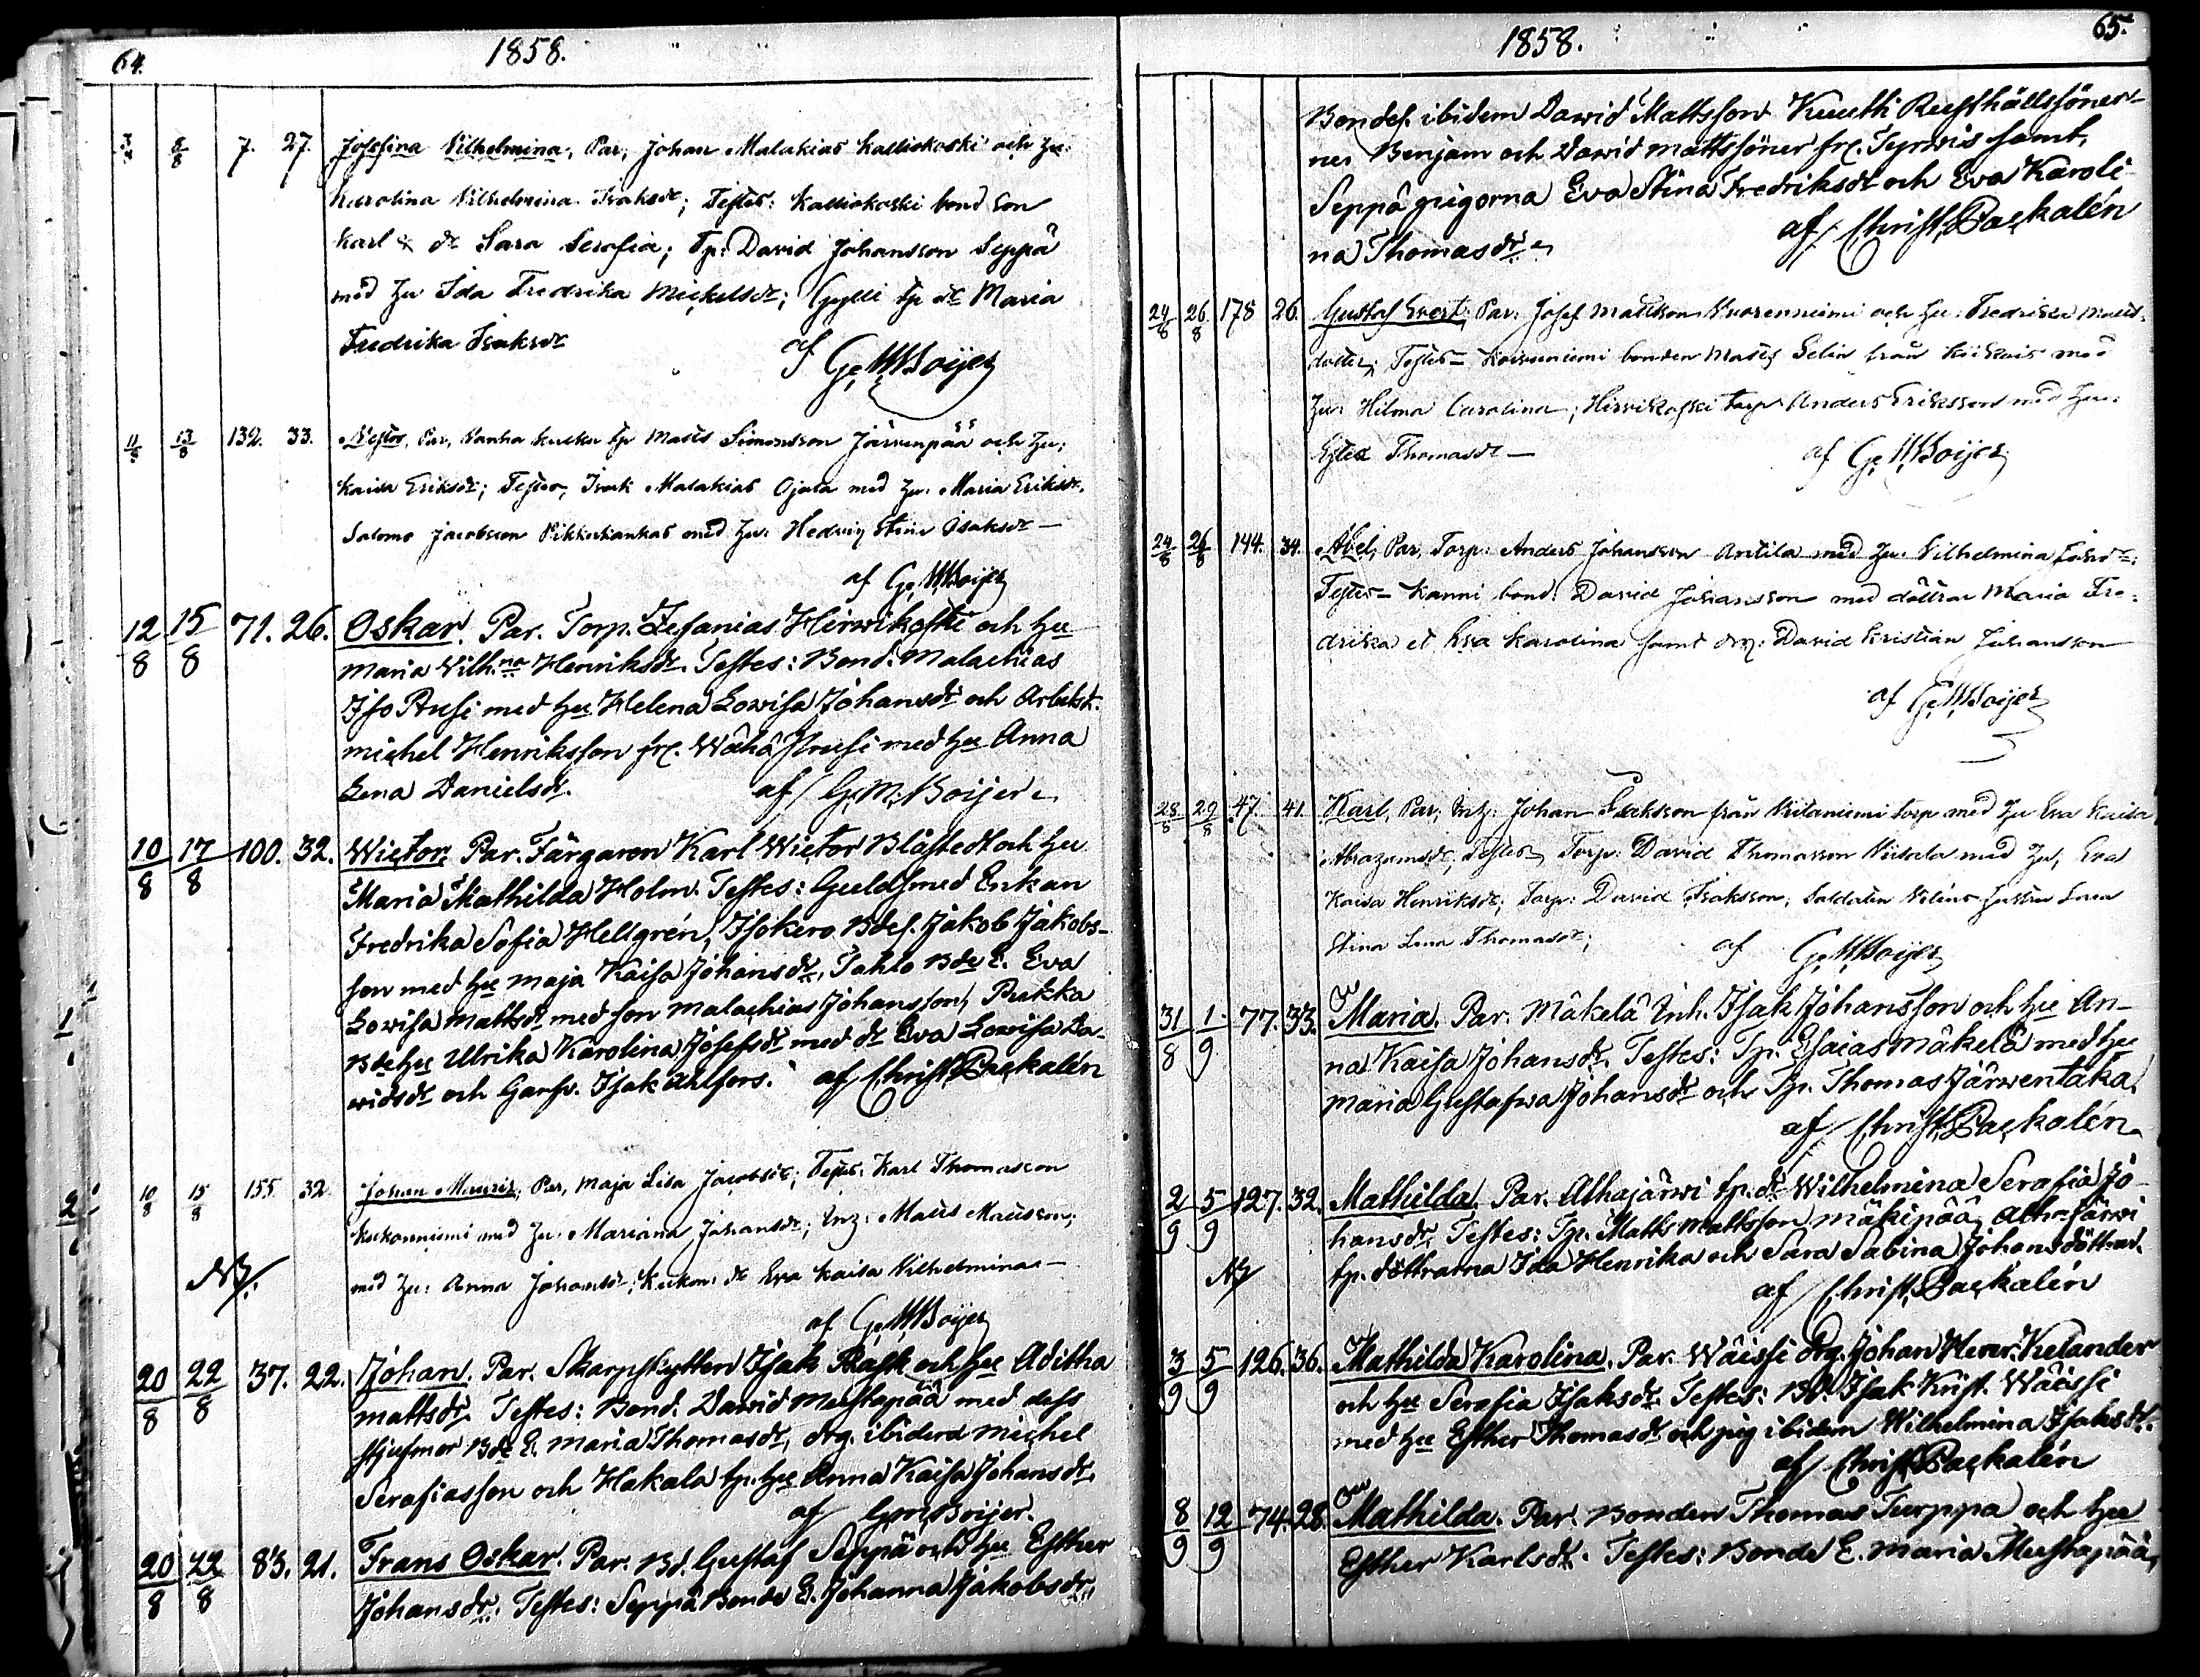 64.
1858.
8 7. 27. Josefina Vilhelmina, Par, Johan Malakias Kalliokoski och Hu:
Karolina Vilhelmina Isaksdr; Testes: Kalliokoski bond son
Karl & dr Sara Serafia; Tp: David Johansson Seppä
med Hu Ida Fredrika Mickelsdr; Gylli tp dr Maria
Fredrika Isaksdr
af G.M.Boijer
11/8 13/8 132. 33. Nestor, Par, Vanha tp Matts Simonsson Järvenpää och Hu;
Kaisa Eriksdr; Testes, Isak Malakias Ojala med Hu: Maria Eriksdr.
Salomo Jacobsson med Hu: Hedvig Stina Isaksdr —
af G.M.Boijer
12/8 15/8 71. 26. Oskar. Par. Torp. Zefanias Hirwikoski och Hu
Maria Vilh:na Henriksdr. Testes: Bond. Malachias
Iso med Hu Helena Lowisa Johansdr och Arbetsk.
Michel Henriksson fr. Wähä med Hu Anna
Lena Danielsdr. af G.M.Boijer
10/8 17/8 100. 32. Wictor. Par. Färgaren Karl Wictor Blåstedt och Hu
Maria Mathilda Holm. Testes: Guldsmed Enkan
Fredrika Sofia Hellgrén, Isokero Bdes. Jakob Jakobs-
son med Hu Maja Kaisa Johansdr, Tahlo Bde E. Eva
Lowisa Mattsdr med son Malachias Johansson, Pukka
Bde Hu Ulrika Karolina Josefsdr med dr Eva Lowisa Da-
widsdr och Garfv. Isak Ahlfors. af Christ. Packalén
10/8 15/8 155 32. Johan Mauriz, Par, Maja Lisa Jacobsdr; Testes: Karl Thomasson
Kukonniemi med Hu: Mariana Johansdr; Inh: Matts Mattsson;
med Hu: Anna Johansdr; Kukon: dr Eva Kaisa Vilhelmina —
af G.M.Boijer
20/8 22/8 37. 22. Johan. Par. Skarpskytten Isak Rask och Hu Aditha
Mattsdr. Testes: Bond. David Mustapää med dess
stjufmor Bde E. Maria Thomasdr, drg. ibidem Michel
Serafiasson och Hakala tp. Hu Anna Kaisa Johansdr.
af G.M.Boijer.
20/8 22/8 83. 21. Frans Oskar. Par. Bd. Gustaf Seppä och Hu Esther
Johansdr. Testes: Seppä Bonde E. Johanna Jakobsdr,
1858.
65.
Bondes. ibidem Dawid Mattsson Knuuti Rusthållssöner-
na Benjam och Dawid Mattssöner fr. Tyrwis samt,
Seppä pigorna Eva Stina Fredriksdr och Eva Karoli-
na Thomasdr af Christ. Packalén
24/8 26/8 178 26. Gustaf Evert. Par. Josef Mattsson Vuorenniemi och Hu: Fredrika Matts-
dotter; Testes = bonden Matts Selin från Kiikois med
Hu: Hilma Carolina; Hirvikoski torp Anders Eriksson med Hu:
Ester Thomasdr —
af G.M.Boijer
24/8 26/8 144. 34. Abel, Par, Torp: Anders Johansson Antila med Hu: Vilhelmina
Testes — Kanni bond: David Johansson med döttrar Maria Fre-
drika et Eva Karolina samt drg: David Kristian Johansson
af G.M.Boijer
28/8 29/8 47. 41. Karl, Par; Inh: Johan Isaksson från torp med Hu Eva Kaisa
Abrahamsdr, Testes, Torp: David Thomasson med Hu, Eva
Kaisa Henriksdr; Torp: David Isaksson, Soldaten
Stina Lena Thomasdr; af G.M.Boijer
31/8 1/9 77. 33. Maria. Par. Mäkelä Inh. Isak Johansson och Hu An-
na Kaisa Johansdr. Testes: Tp. Esaias Mäkelä med Hu
Maria Gustafwa Johansdr och Tp. Thomas Järwentaka.
af Christ. Packalén
2/9 5/9 127. 32. Mathilda. Par. Alhajärwi tp. dr Wilhelmina Serafia Jo-
hansdr. Testes: Tp. Matts Mattsson Mäkipää, Alhajärwi
tp. döttrarna Ida Henrika och Sara Sabina Johansdöttrar.
af Christ. Packalén
3/9 5/9 126. 36. Mathilda Karolina. Par. Wäissi drg. Johan Henr. Kelander
och Hu Serafia Isaksdr. Testes: Bd. Isak Krist. Wäissi
med Hu Esther Thomasdr och pig ibidem Wilhelmina Isaksdr.
af Christ. Packalén
8/9 12/9 74. 28. Mathilda. Par. Bonden Thomas Turppa och Hu
Esther Karlsdr. Testes: Bonde E. Maria Mustapää,